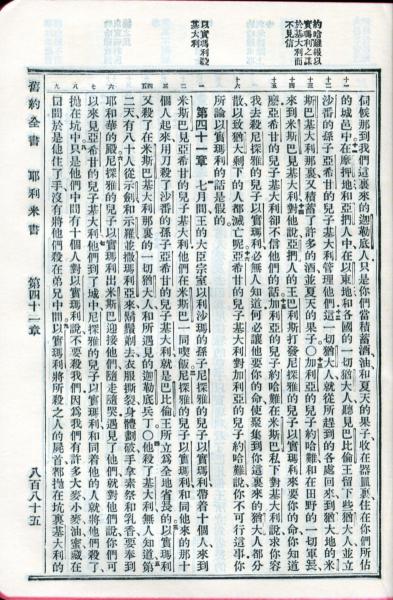 約哈難報以
實瑪利之謀
於基大利而
不見信
以實瑪利殺
基大利
伺候那到我們這裏來的迦勒底人只是你們當積蓄酒油和夏天的果子收在器皿裏住在你們所佔
十一 的城邑中在摩押地和亞捫人中在以東地和各國的一切猶大人聽見巴比倫王留下些猶大人並立
十二 沙番的孫子亞希甘的兒子基大利管理他們這一切猶大人就從所趕到的各處回來到猶大地的米
十三 斯巴基大利那裏又積蓄了許多的酒並夏天的果子〇加利亞的兒子約哈難和在田野的一切軍長
十四 來到米斯巴見基大利對他說亞捫人的王巴利斯打發尼探雅的兒子以實瑪利來要你的命你知道
十五 麼亞希甘的兒子基大利卻不信他們的話加利亞的兒子約哈難在米斯巴私下對基大利說求你容
我去殺尼探雅的兒子以實瑪利必無人知道何必讓他要你的命使聚集到你這裏來的猶大人都分
十六 散以致猶大剩下的人都滅亡呢亞希甘的兒子基大利對加利亞的兒子約哈難說你不可行這事你
所論以實瑪利的話是假的
一 第四十一章 七月間王的大臣宗室以利沙瑪的孫子尼探雅的兒子以實瑪利帶着十個人來到
二 米斯巴見亞希甘的兒子基大利他們在米斯巴一同喫飯尼探雅的兒子以實瑪利和同他來的那十
三 個人起來用刀殺了沙番的孫子亞希甘的兒子基大利就是巴比倫王所立爲全地省長的以實瑪利
四五 又殺了在米斯巴基大利那裏的一切猶大人和所遇見的迦勒底兵丁〇他殺了基大利無人知道第
二天有八十人從示劍和示羅並撒瑪利亞來鬍鬚剃去衣服撕裂身體劃破手拿素祭和乳香要奉到
六 耶和華的殿尼探雅的兒子以實瑪利出米斯巴迎接他們隨走隨哭遇見了他們就對他們說你們可
七 以來見亞希甘的兒子基大利他們到了城中尼探雅的兒子以實瑪利和同着他的人就將他們殺了
八 拋在坑中只是他們中間有十個人對以實瑪利說不要殺我們因爲我們有許多大麥小麥油蜜藏在
九 田間於是他住了手沒有將他們殺在弟兄中間以實瑪利將所殺之人的屍首都拋在坑裏基大利的
舊約全書 耶利米書 第四十一章 八百八十五